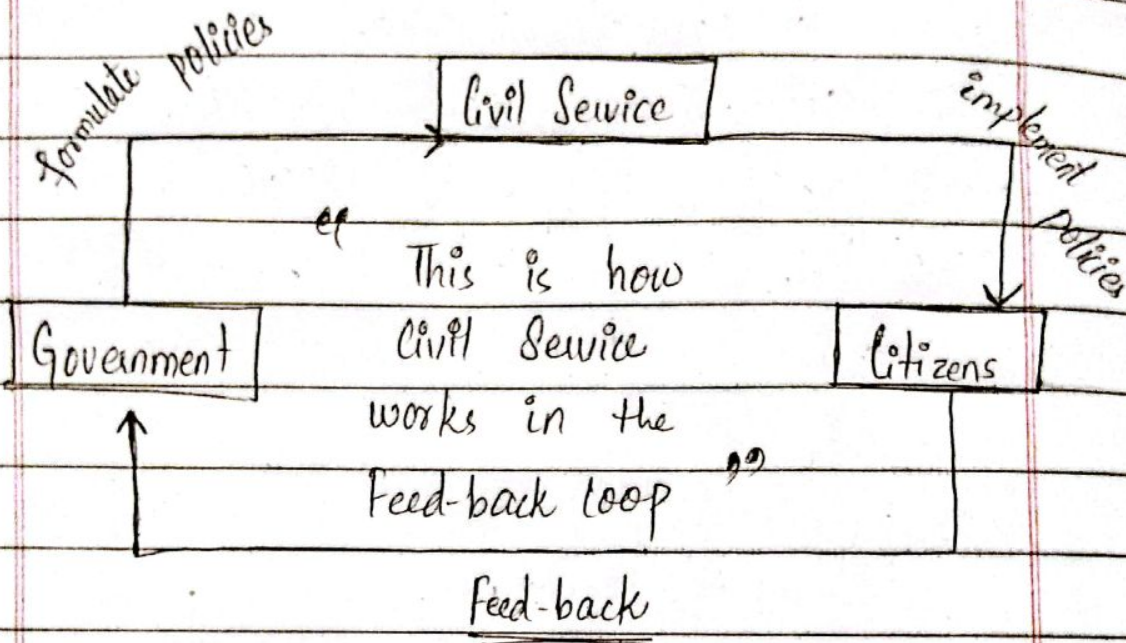 formulate policies
Civil Service
implement policies
“ This is how
Civil Service
works in the
Feed-back loop ”
Government
Citizens
Feed-back